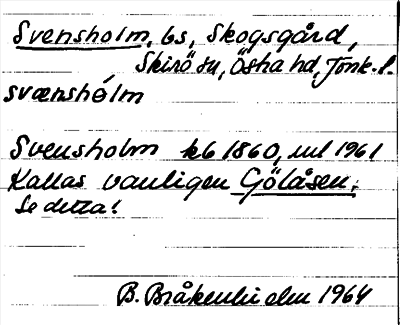 Svensholm, bs, Skogsgård,
Skirö sn, Östra hd, Jönk. l.
svænshólm
Svensholm kb 1860, ml 1961
Kallas vanligen Gölåsen,
Se detta!
B. Bråkenhielm 1964